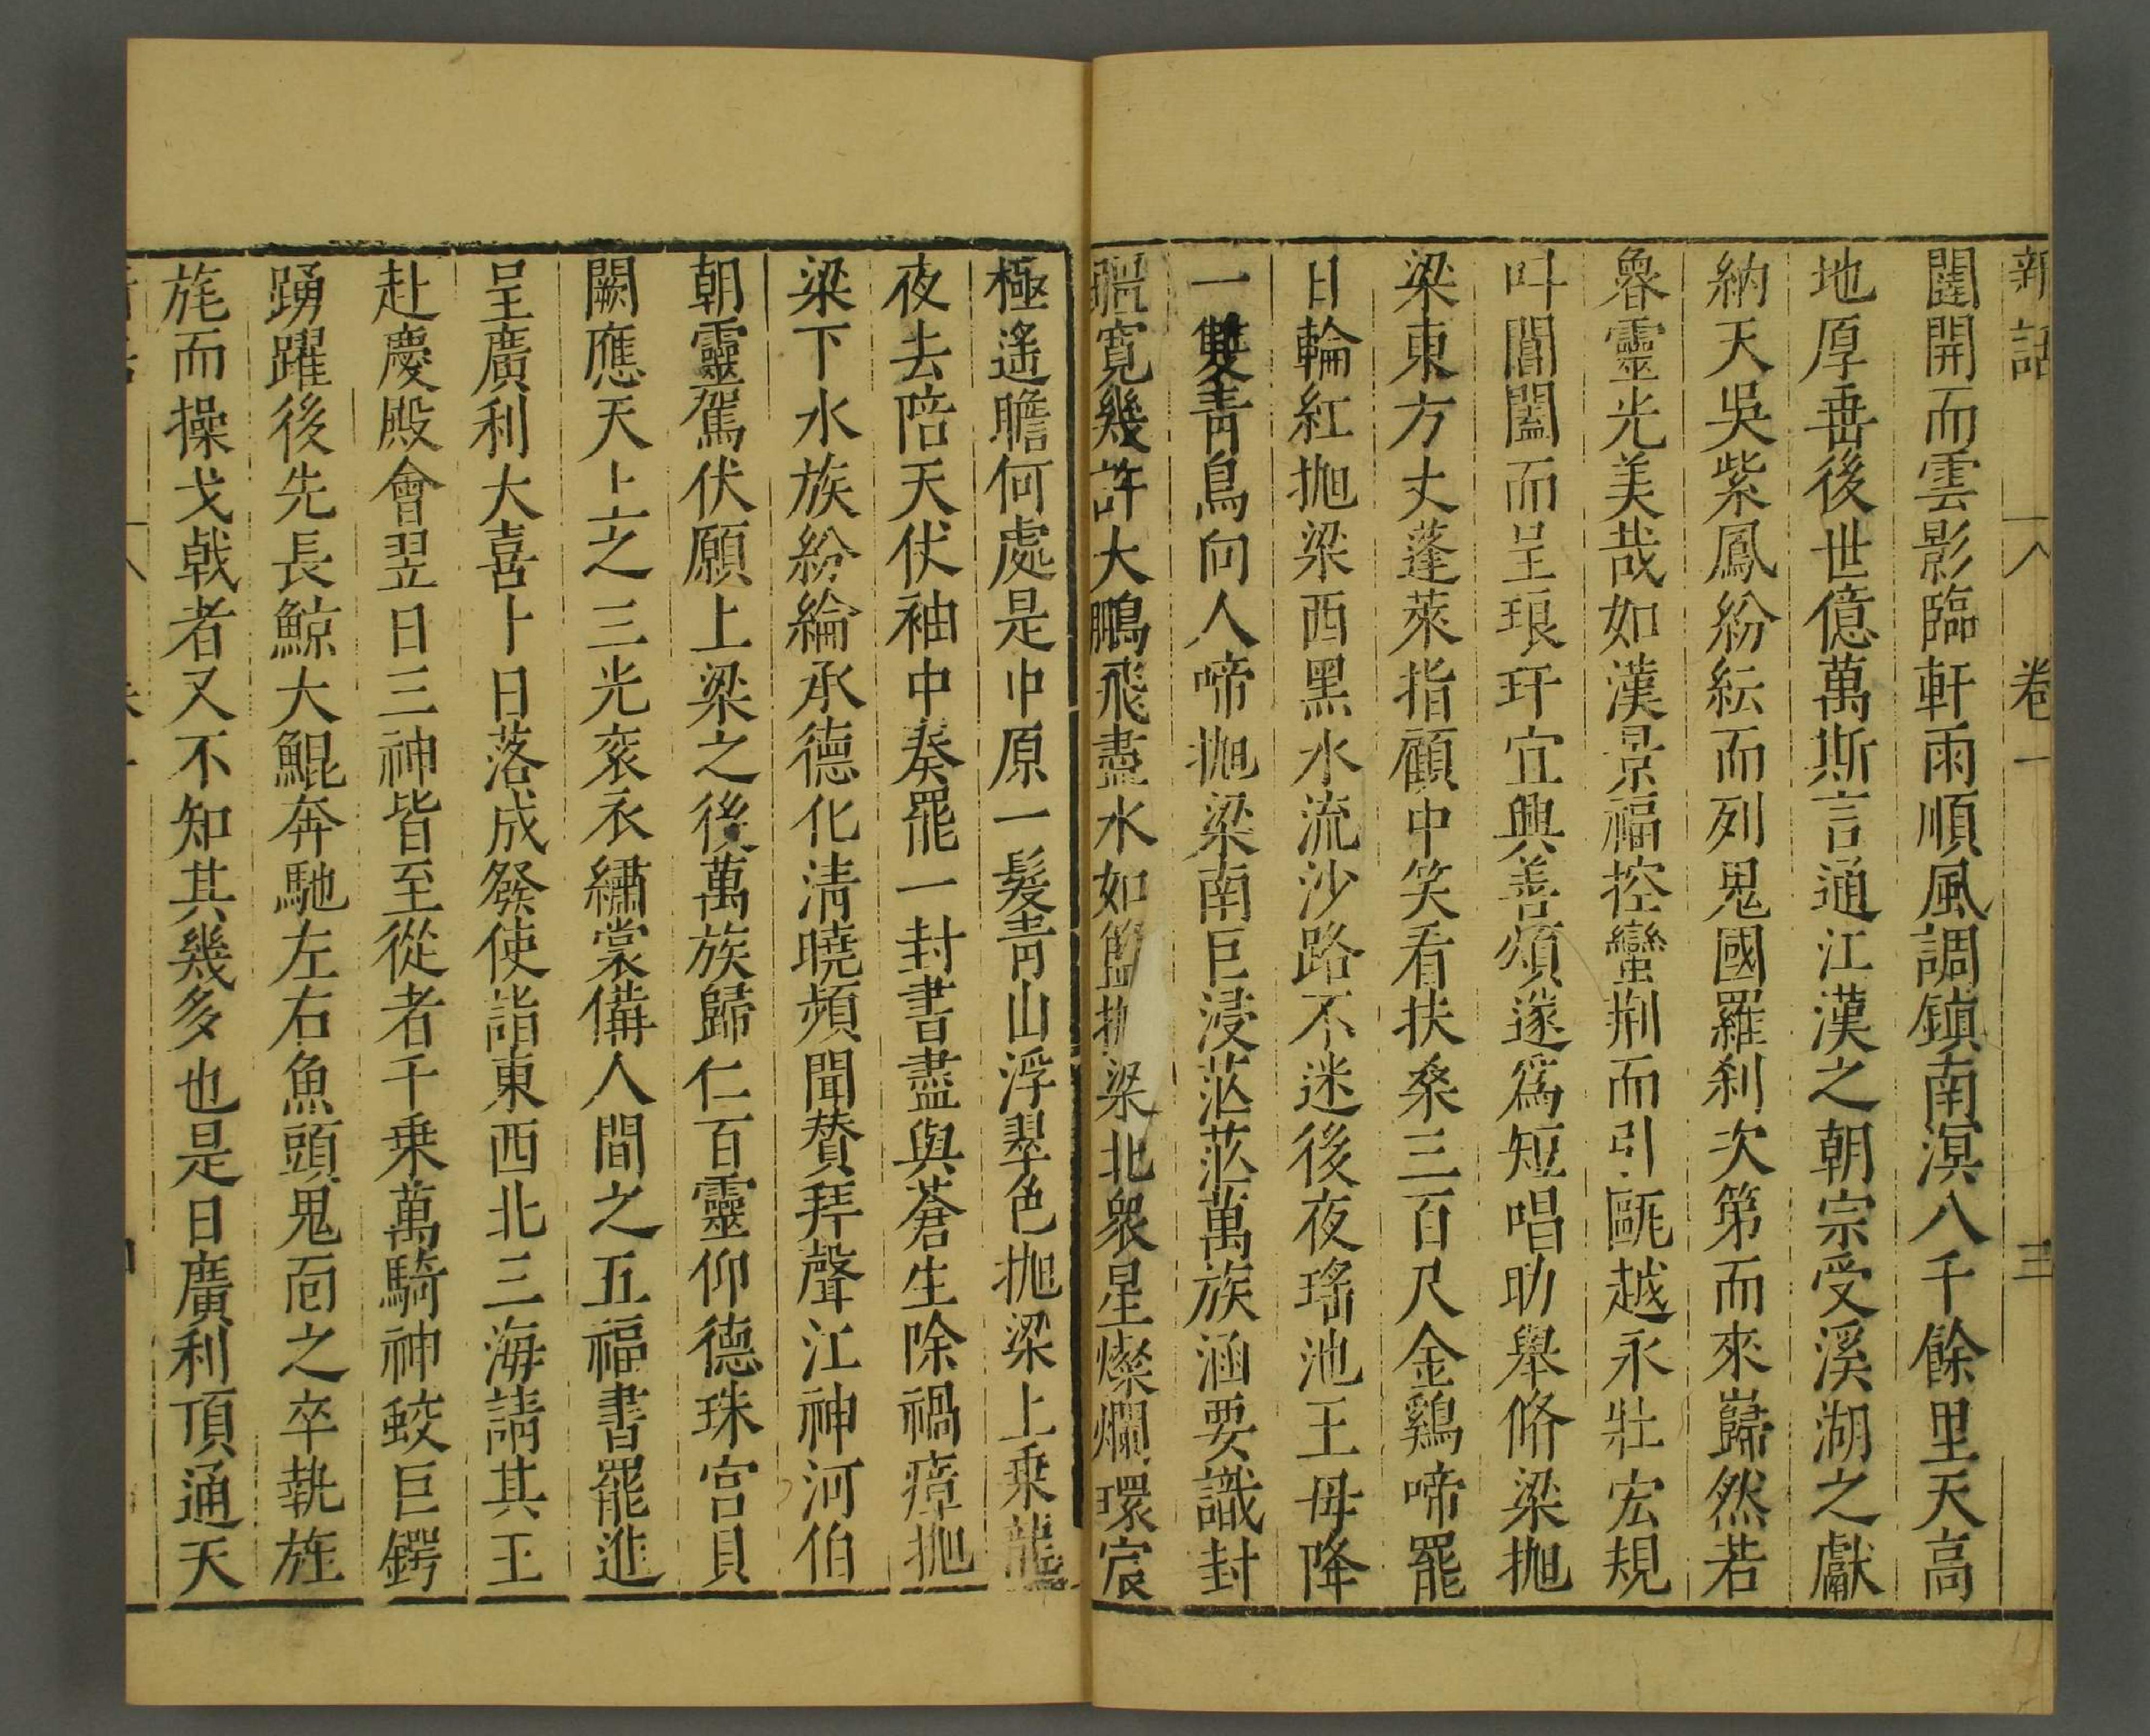 新話 卷一 三
闥開而雲影臨軒雨順風調鎮南溟八千餘里天高
地厚垂後世億萬斯言通江漢之朝宗受溪湖之獻
納天吳紫鳳紛紜而列鬼國羅刹次第而來巋然若
魯靈光美哉如漢景福控蠻荆而引甌越永壯宏規
叫閶闔而呈琅玕宜興善頌遂爲短唱助舉脩梁抛
梁東方丈蓬萊指顧中笑看扶桑三百尺金鷄啼罷
日輪紅抛梁西黑水流沙路不迷後夜瑤池王母降
一雙青鳥向人啼抛梁南巨浸茫茫萬族涵要識封
疆寛幾許大鵬飛盡水如藍抛梁北衆星燦爛環宸
極遙瞻何處是中原一髮青山浮翠色抛梁上乗龍
夜去陪天仗袖中奏罷一封書盡與蒼生除禍瘴抛
梁下水族紛綸承德化淸曉頻聞賛拜聲江神河伯
朝靈駕伏願上梁之後萬族歸仁百靈仰德珠宮貝
闕應天上之三光衮衣繡裳備人間之五福書罷進
呈廣利大喜卜日落成發使詣東西北三海請其王
赴慶殿會翌日三神皆至從者千乗萬騎神蛟巨鰐
踴躍後先長鯨大鯤奔馳左右魚頭鬼面之卒執旌
旄而操戈戟者又不知其幾多也是日廣利頂通天